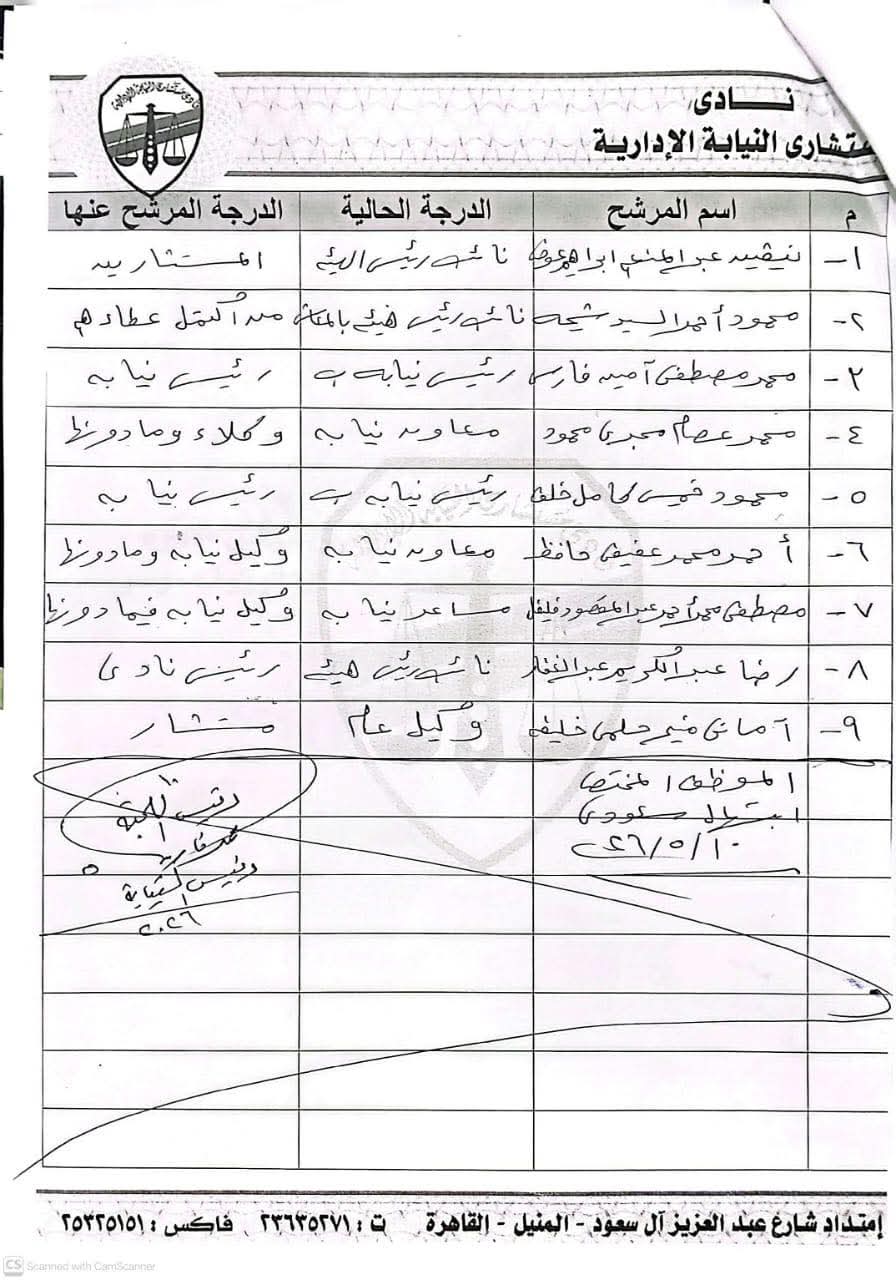 نادى
مستشارى النيابة الإدارية
م اسم المرشح الدرجة الحالية الدرجة المرشح عنها
١- نيفين عبد المنعم ابراهيم عوض نائب رئيس الهيئة المستشارين
٢- محمود أحمد السيد شيحه نائب رئيس هيئة بالمعاش من أكتمل عطاءهم
٣- محمد مصطفى أمين فارس رئيس نيابه ب رئيس نيابه
٤- محمد عصام مجدى محمود معاون نيابه وكلاء ومادونها
٥- محمود خميس كامل خلف رئيس نيابه ب رئيس نيابه
٦- أحمد محمد عفيفى حافظ معاون نيابه وكيل نيابة ومادونها
٧- مصطفى محمد أحمد عبد المقصود مساعد نيابه وكيل نيابه فيمادونها
٨- رضا عبد الكريم عبد الغفار نائب رئيس هيئة رئيس نادى
٩- أمانى منير حلمى خليفه وكيل عام مستشار
الموظف المختص
ابتهال سعودى
٢٠٢٦/٥/١٠
رئيس اللجنة
رئيس النيابة
٢٠٢٦
إمتداد شارع عبد العزيز آل سعود - المنيل - القاهرة ت : ٢٣٦٣٥٢٧١ فاكس : ٢٥٣٢٥١٥١
CS Scanned with CamScanner